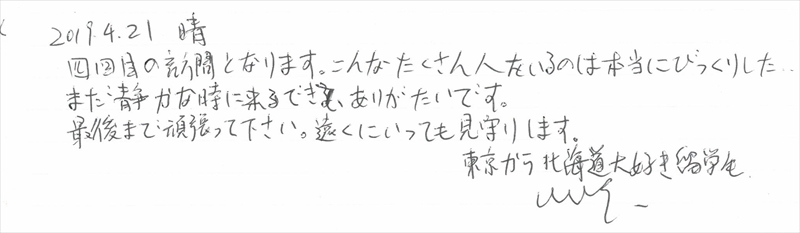 2019.4.21 晴
四回目の訪問となります。こんなたくさん人がいるのは本当にびっくりした…
また静かな時に来るでき、ありがたいです。
最後まで頑張って下さい。遠くにいっても見守ります。
東京から北海道大好き留学生